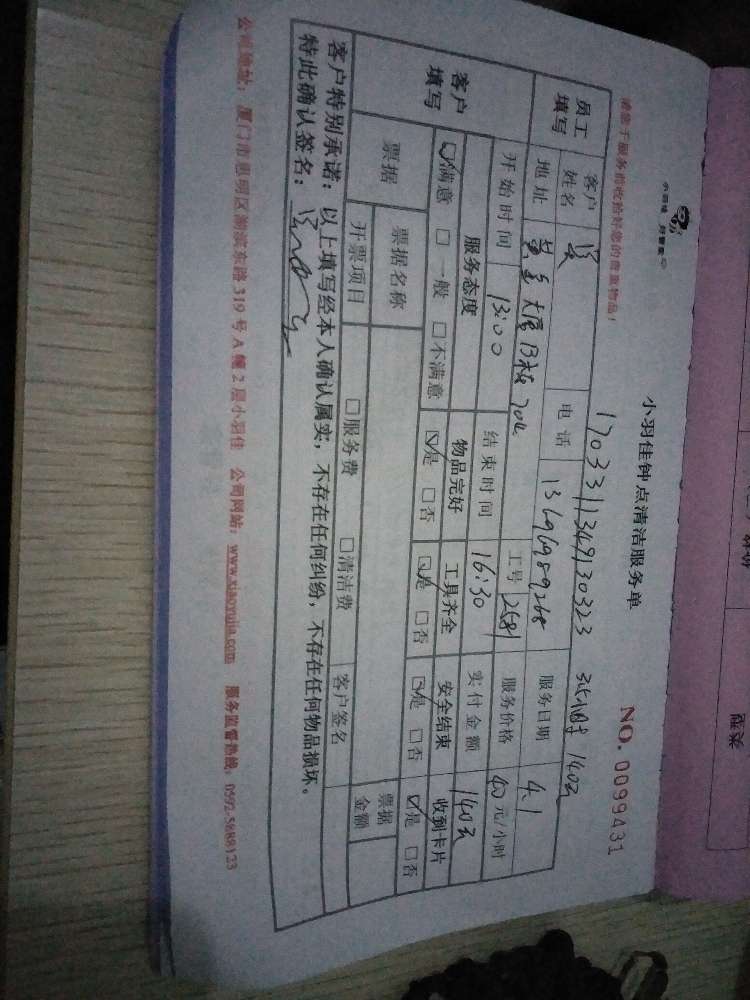 小羽佳 好管家
小羽佳钟点清洁服务单
NO. 0099431
请您于服务前收拾好您的贵重物品!
1703311349130323 3.5小时 140元
员工填写 客户姓名 电话 13696989268 服务日期 4.1
地址 B栋 704 工号 2681 服务价格 40元/小时
开始时间 13:00 结束时间 16:30 实付金额 140元
客户填写 服务态度 物品完好 工具齐全 安全结束 收到卡片
☑满意 □一般 □不满意 ☑是 □否 ☑是 □否 ☑是 □否 ☑是 □否
票据 票据名称 票据金额
开票项目 □服务费 □清洁费 客户签名
客户特别承诺:以上填写经本人确认属实,不存在任何纠纷,不存在任何物品损坏。
特此确认签名:
公司地址:厦门市思明区湖滨东路319号A幢2层小羽佳 公司网站:www.xiaoyujia.com 服务监督热线:0592-5888123